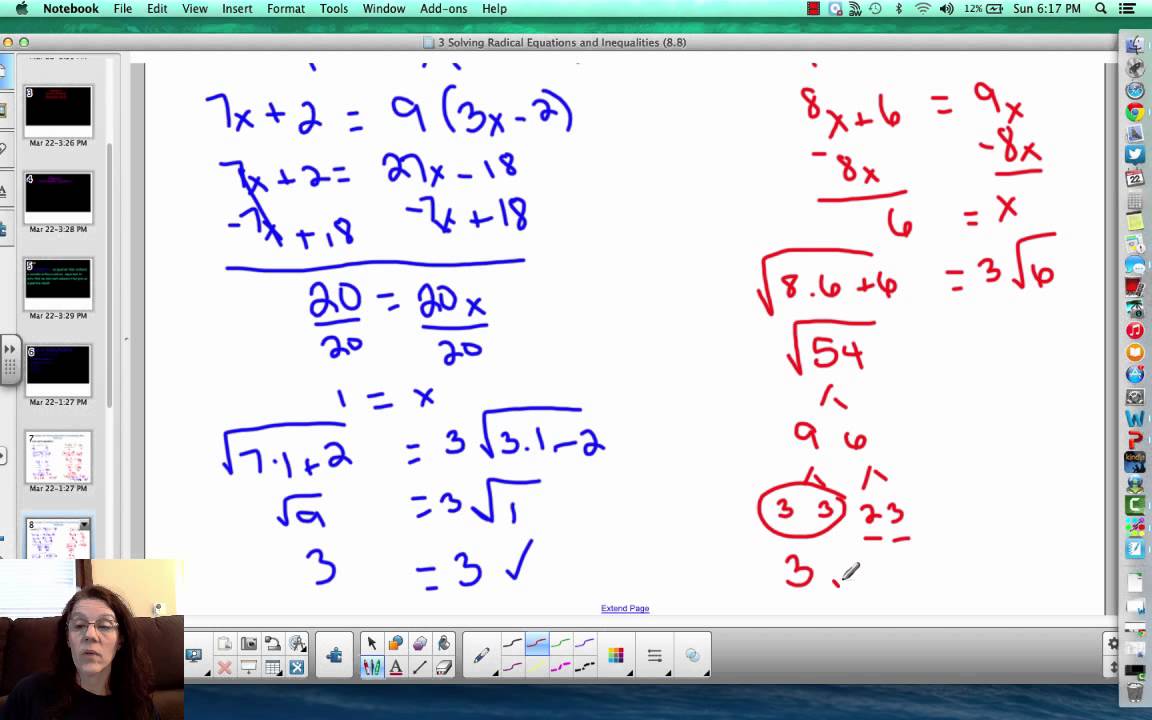 Notebook File Edit View Insert Format Tools Window Add-ons Help 12% Sun 6:17 PM
3 Solving Radical Equations and Inequalities (8.8)
3
Mar 22-3:26 PM
4
Mar 22-3:28 PM
5
Mar 22-3:29 PM
6
Mar 22-1:27 PM
7
Mar 22-1:27 PM
8
7x + 2 = 9 (3x - 2)
7x + 2 = 27x - 18
-7x + 18 -7x + 18
20 = 20x
20 20
1 = x
√7·1+2 = 3√3·1-2
√9 = 3√1
3 = 3 ✓
8x + 6 = 9x
-8x -8x
6 = x
√8·6+6 = 3√6
√54
9 6
3 3 2 3
3
Extend Page